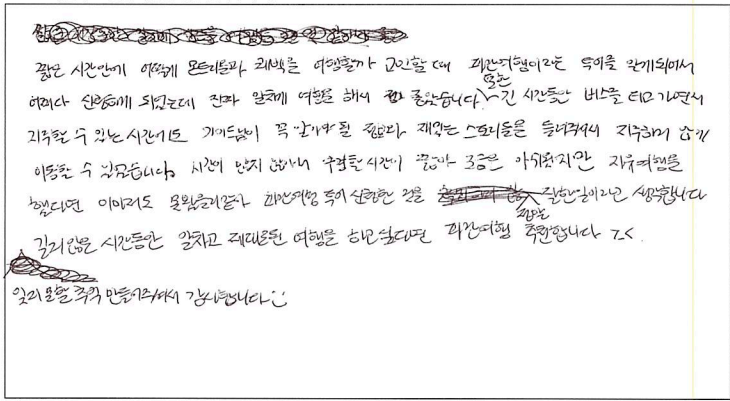 짧은 시간안에 어떻게 몬트리올과 퀘백을 여행할까 고민할 때 파란여행이라는 투어를 알게되어서
신청하게 되었는데 진짜 알차게 여행을 해서 좋았습니다 물론 긴 시간동안 버스를 타고 가면서
지루할 수 있는 시간에도 가이드님이 꼭 알아야 될 정보와 재밌는 스토리들을 들려주셔서 지루하지 않게
이동할 수 있었습니다. 시간이 많지 않아서 구경할 시간이 짧아 조금은 아쉬웠지만 자유여행을
했다면 이마저도 못했을것같아 파란여행 투어 신청한 것을 정말 잘한일이라고 생각합니다
길지않은 시간동안 알차고 제대로된 여행을 하고싶다면 파란여행 추천합니다 ㅋㅋ
잊지 못할 추억 만들어주셔서 감사합니다